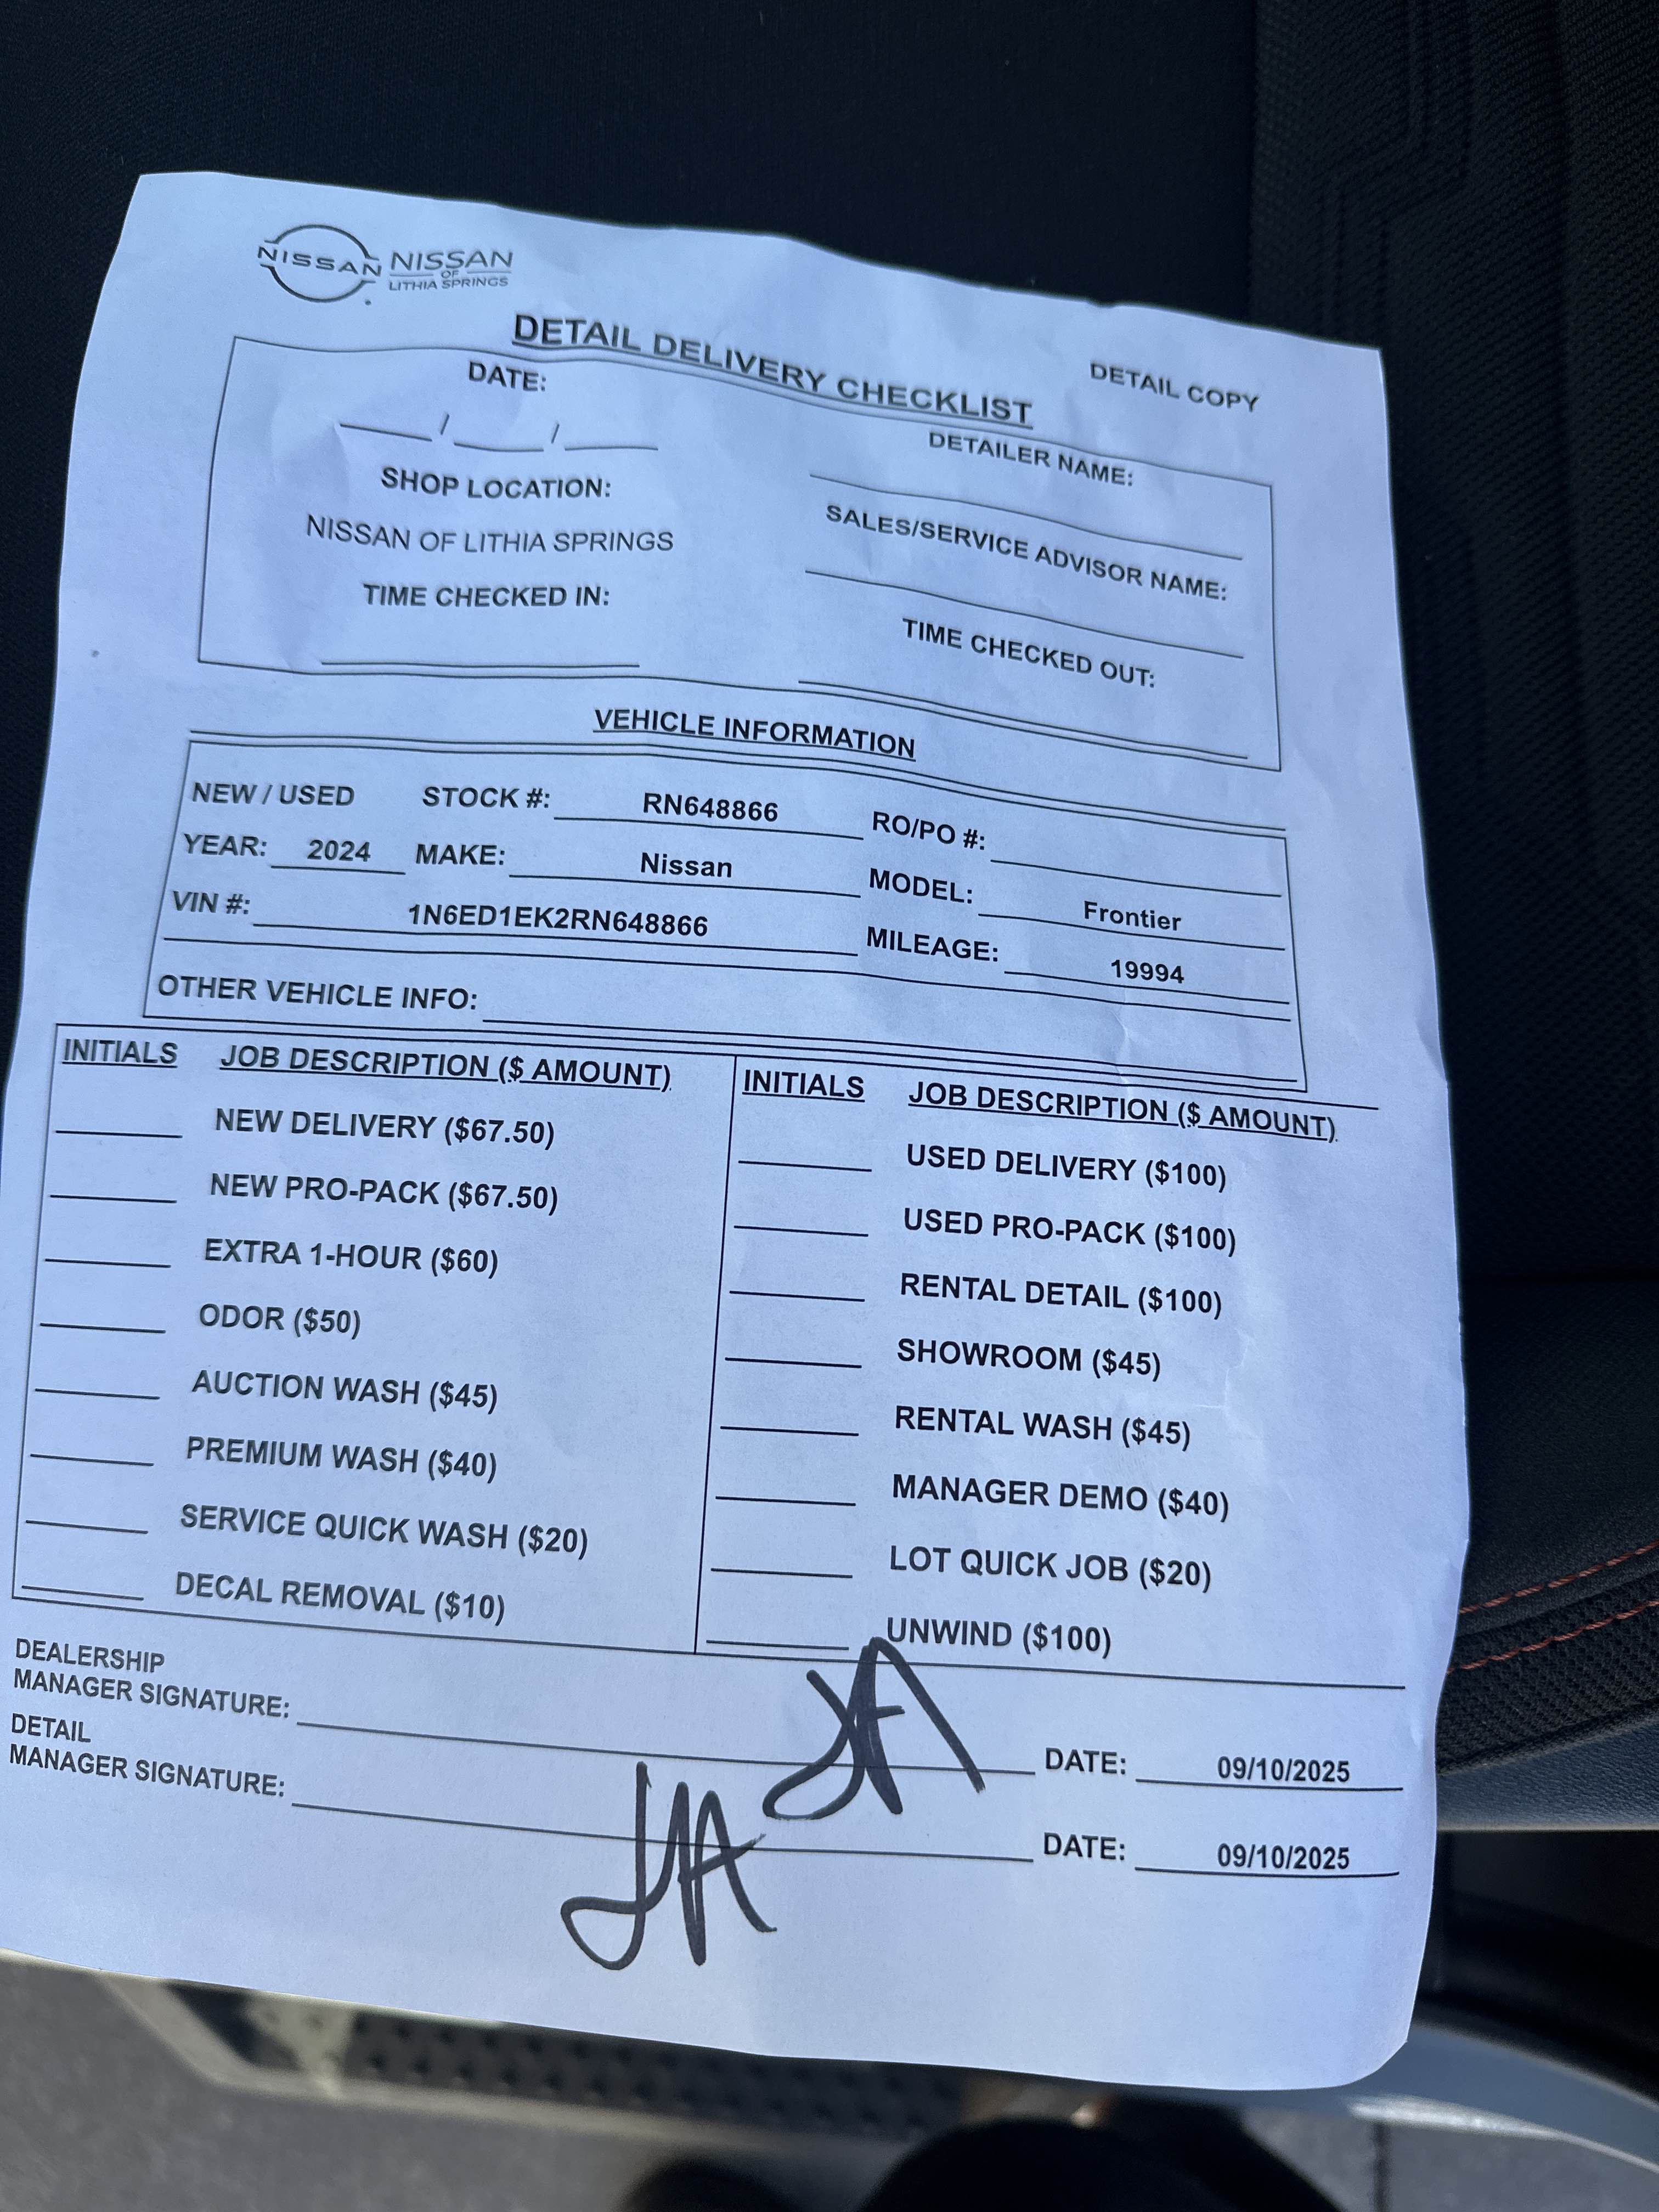 NISSAN NISSAN
OF
LITHIA SPRINGS
DETAIL DELIVERY CHECKLIST
DETAIL COPY
DATE:
____/____/____
DETAILER NAME:
SHOP LOCATION:
NISSAN OF LITHIA SPRINGS
SALES/SERVICE ADVISOR NAME:
TIME CHECKED IN:
TIME CHECKED OUT:
VEHICLE INFORMATION
NEW / USED STOCK #: RN648866 RO/PO #:
YEAR: 2024 MAKE: Nissan MODEL: Frontier
VIN #: 1N6ED1EK2RN648866 MILEAGE: 19994
OTHER VEHICLE INFO:
INITIALS JOB DESCRIPTION ($ AMOUNT)
NEW DELIVERY ($67.50)
NEW PRO-PACK ($67.50)
EXTRA 1-HOUR ($60)
ODOR ($50)
AUCTION WASH ($45)
PREMIUM WASH ($40)
SERVICE QUICK WASH ($20)
DECAL REMOVAL ($10)
INITIALS JOB DESCRIPTION ($ AMOUNT)
USED DELIVERY ($100)
USED PRO-PACK ($100)
RENTAL DETAIL ($100)
SHOWROOM ($45)
RENTAL WASH ($45)
MANAGER DEMO ($40)
LOT QUICK JOB ($20)
UNWIND ($100)
DEALERSHIP
MANAGER SIGNATURE: DATE: 09/10/2025
DETAIL
MANAGER SIGNATURE: DATE: 09/10/2025